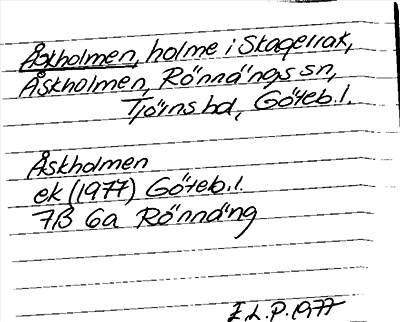 Åskholmen, holme i Skagerrak,
Åskholmen, Rönnängs sn,
Tjörns hd, Göteb.l.
Åskholmen
ek (1977) Göteb.l.
7B 6a Rönnäng
E.L.P. 1977